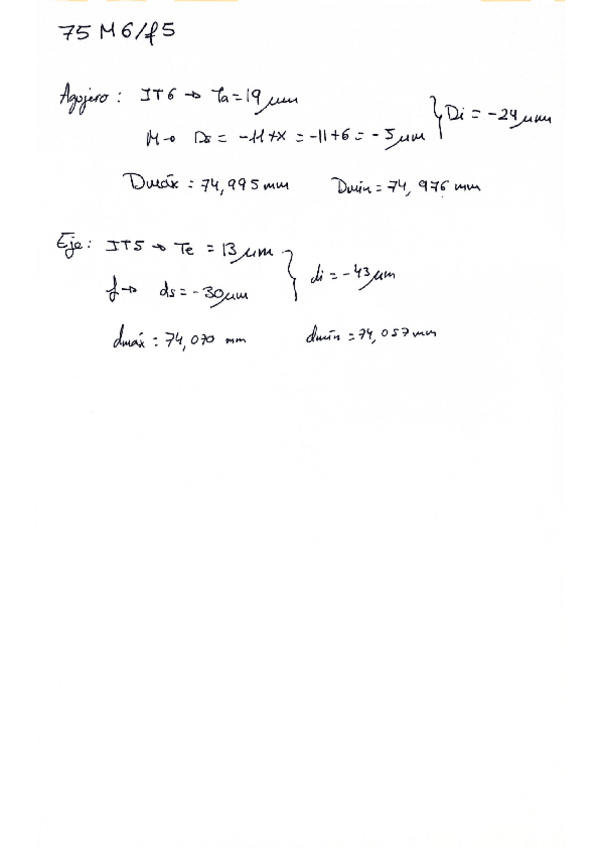 75 M6/f5
Agujero: IT6 → Ta = 19 μm
M → Ds = -11 + x = -11 + 6 = -5 μm } Di = -24 μm
Dmáx = 74,995 mm Dmin = 74,976 mm
Eje: IT5 → Te = 13 μm
f → ds = -30 μm } di = -43 μm
dmáx = 74,070 mm dmín = 74,057 mm